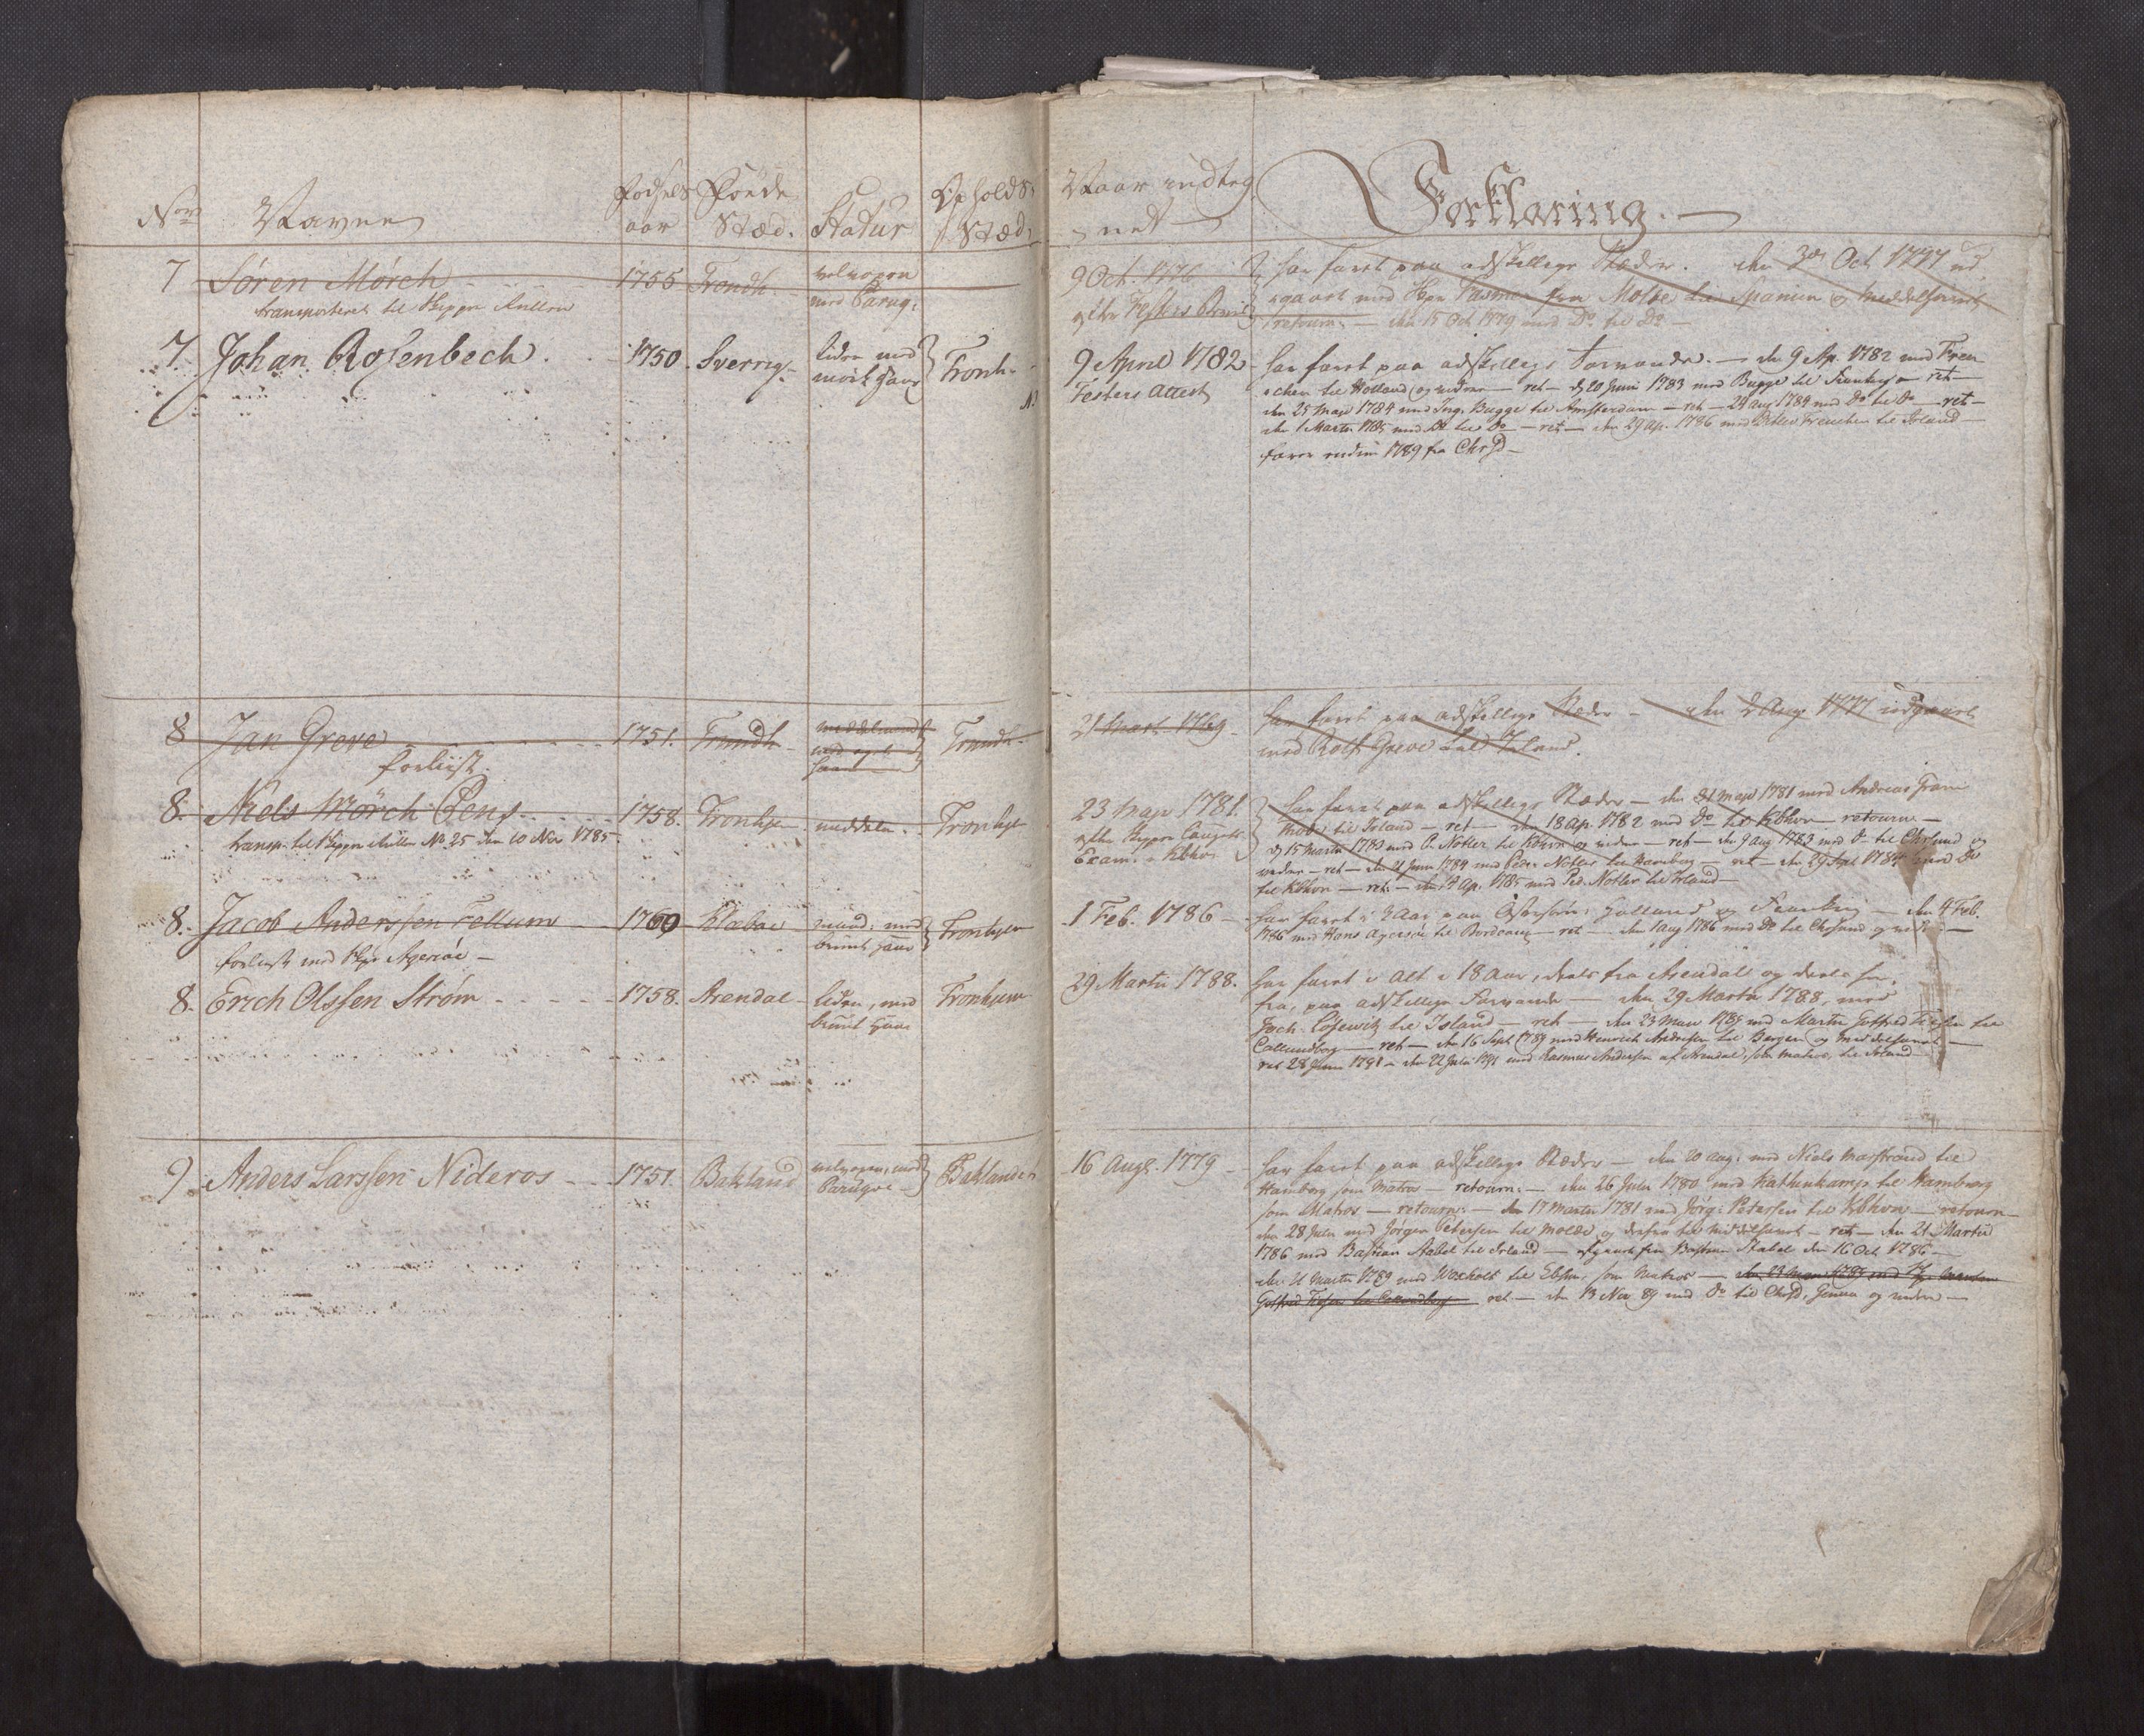 No Navne Fødsels aar Føede Stæd. Statur Opholds Stæd. Naar indteg net Forklaring.
7 Søren Mørch 1755 Trondh. velvoxen med Paruq:
transporteret til Skipper Rullen
9 Oct. 1776
efter Festers Beviis
har faret paa adskillige Stæder. den 3die Oct 1777 ud
gaaet med Skpr Rasmus fra Molde til Spanien og Middelhavet
retourn: — den 15 Oct 1779 med Do til Do —
7. Johan Rosenbech. 1750. Sverrig liden med mørk Haar Tronh.
9 April 1782
Festers Attest
har faret paa adskillige Farvande. — den 9 Ap. 1782 med Fren
chen til Holland og videre — ret — d 20 Juni 1783 med Bugge til Frankrig — ret —
den 25 Maji 1784 med Jørg. Bugge til Amsterdam — ret — 24 aug 1784 med do til do — ret —
den 1 Martii 1785 med do til do — ret — den 29 ap. 1786 med Ditlev Frenchen til Irland —
farer endnu 1789 fra Chrsd —
8 Jan Greve 1751. Trondh. middelmaadig med Haar Trondh.
forliist.
21 Mart. 1769
har faret paa adskillige Stæder — den 2 Aug 1777 udgaaet
med Rolf Greve til Irland.
8. Niels Mørch Lens 1758. Tronhje middeln. Tronhje
transp. til Skipper Rullen No 25 den 10 Nov 1785
23 Maji 1781.
efter Skipper
Exam. i Kbhvn
har faret paa adskillige Stæder — den 31 Maji 1781 med Andreas
Moe til Irland — ret — den 18 Ap. 1782 med do til Kbhvn — retourn —
d 15 Martii 1783 med P. Notler til Kbhvn og videre — ret — den 9 aug 1783 med do til Chrsund og
videre — ret — den 4 Juni 1784 med Peder Notler til Hamborg — ret — den 29 Sept 1784 med do
til Kbhvn — ret. — den 14 Ap. 1785 med Ped. Notler til Irland —
8. Jacob Anderssen Tellum 1760 Klæboe maad: med bruunt Haar Tronhjem
forliist med Skpr Agerøe —
1 Feb. 1786 —
har faret i 3 Aar paa Østersøen, Holland og Frankrig — den 4 Feb.
1786 med Hans Agerøe til Bordeaux — ret — den 1 Aug 1786 med do til Chrsund og videre —
8. Erich Olssen Strøm 1758. Arendal liden, med bruunt Haar Tronhjem
29 Martii 1788.
har faret i alt i 18 Aar, deels fra Arendal og deels her
fra, paa adskillige Farvande — den 29 Martii 1788, med
Joch. Løsewitz til Island — ret — den 23 Maii 1789 med Martin Gotfred til
Callundborg — ret — den 16 Sept 1789 med Henrich Andersen til Bergen og Middelhavet —
ret 28 Juni 1791 — den 22 Julii 1791 med Rasmus Andersen af Arendal, som Matros, til Irland
9 Anders Larssen Nideros 1751. Bakland velvoxen, med Paruque Baklandet
16 Aug. 1779
har faret paa adskillige Stæder — den 20 aug: med Niels Marstrand til
Hamborg som Matros — retourn: — den 26 Julii 1780 med Kathenkamp til Hamborg
som Matros — retourn: — den 17 Martii 1781 med Jørg: Petersen til Kbhvn — retourn —
den 28 Julii med Jørgen Petersen til Molde og derfra til Middelhavet — ret — den 21 Martii
1786 med Bastian Stabel til Irland — afgaaet fra Bastian Stabel den 16 Oct 1786 —
den 21 Martii 1789 med Woxholt til Ebsen, som Matros — den 23 Maii 1789 med Skpr Martin
Gotfred til Callundborg ret — den 13 Nov 89 med do til Chrsd, Genua og videre —